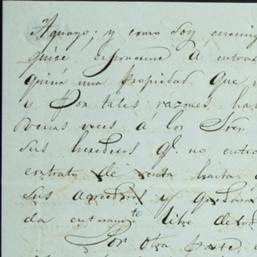 Aguayo; y como soy enemig
quise esponerme á entrar
quiria una propiedad que n
y Por tales razones ha
varias veces á los Sres.
sus herederos q. no entra
contrato de venta hasta
sus agredores y quedara
da enteramte libre de to
Por otra parte, a